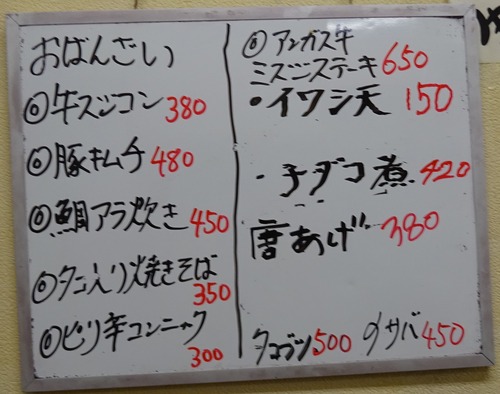 おばんざい
◎牛スジコン 380
◎豚キムチ 480
◎鯛アラ炊き 450
◎タコ入り焼きそば 350
◎ピリ辛コンニャク 300
◎アンガス牛
ミスジステーキ 650
・イワシ天 150
・子ダコ煮 420
唐あげ 380
タコブツ 500 〆サバ 450